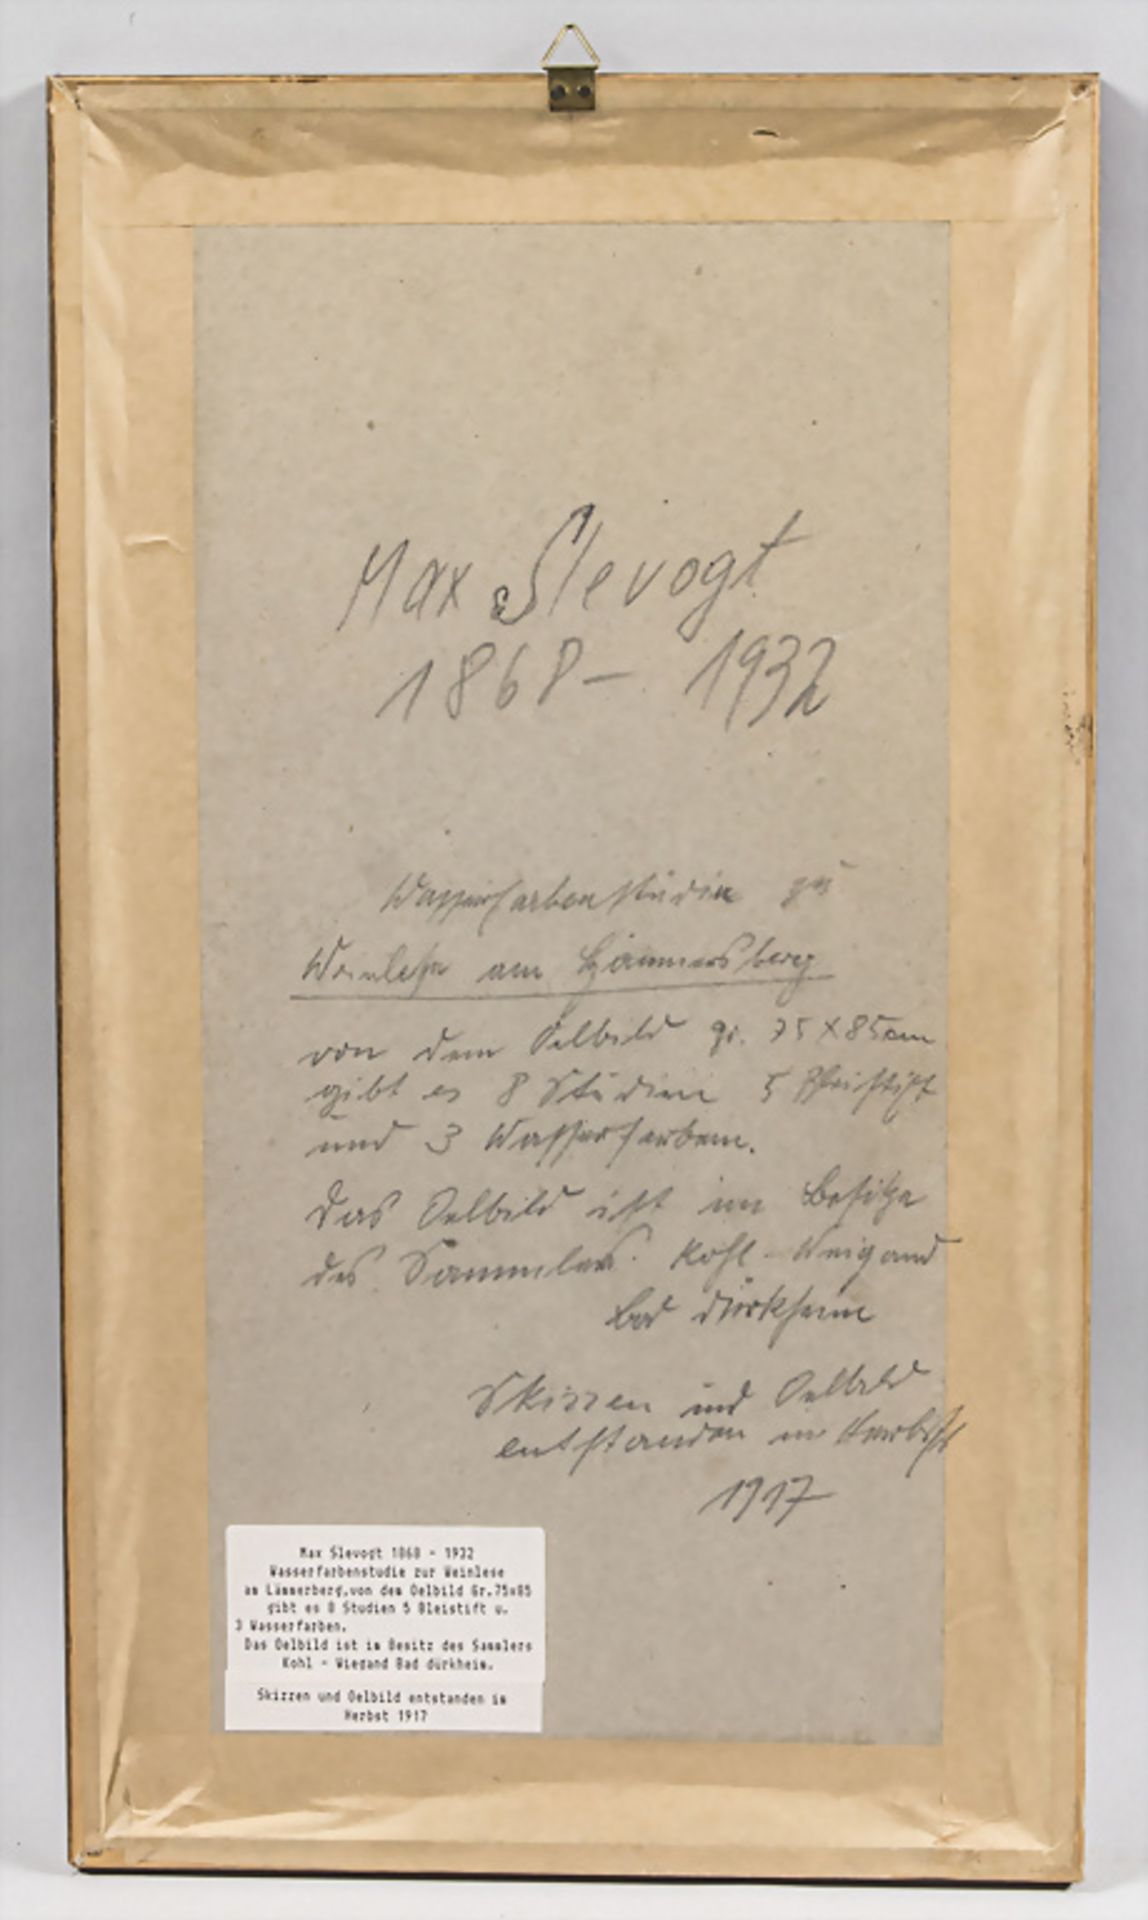 Max Slevogt
1868 – 1932
Wasserfarbenstudie zu
Weinlese am
von dem Oelbild gr. 75 X 85 cm
gibt es 8 Studien 5 Bleistift
und 3 Wasserfarben.
Das Oelbild ist im Besitze
des Sammlers Kohl-Weigand
Bad Dürkheim
Skizzen und Oelbild
entstanden im Herbst
1917
Max Slevogt 1868 - 1932
Wasserfarbenstudie zur Weinlese
am Lämmerberg,von dem Oelbild Gr.75x85
gibt es 8 Studien 5 Bleistift u.
3 Wasserfarben.
Das Oelbild ist im Besitz des Sammlers
Kohl - Wiegand Bad dürkheim.
Skizzen und Oelbild entstanden im
Herbst 1917